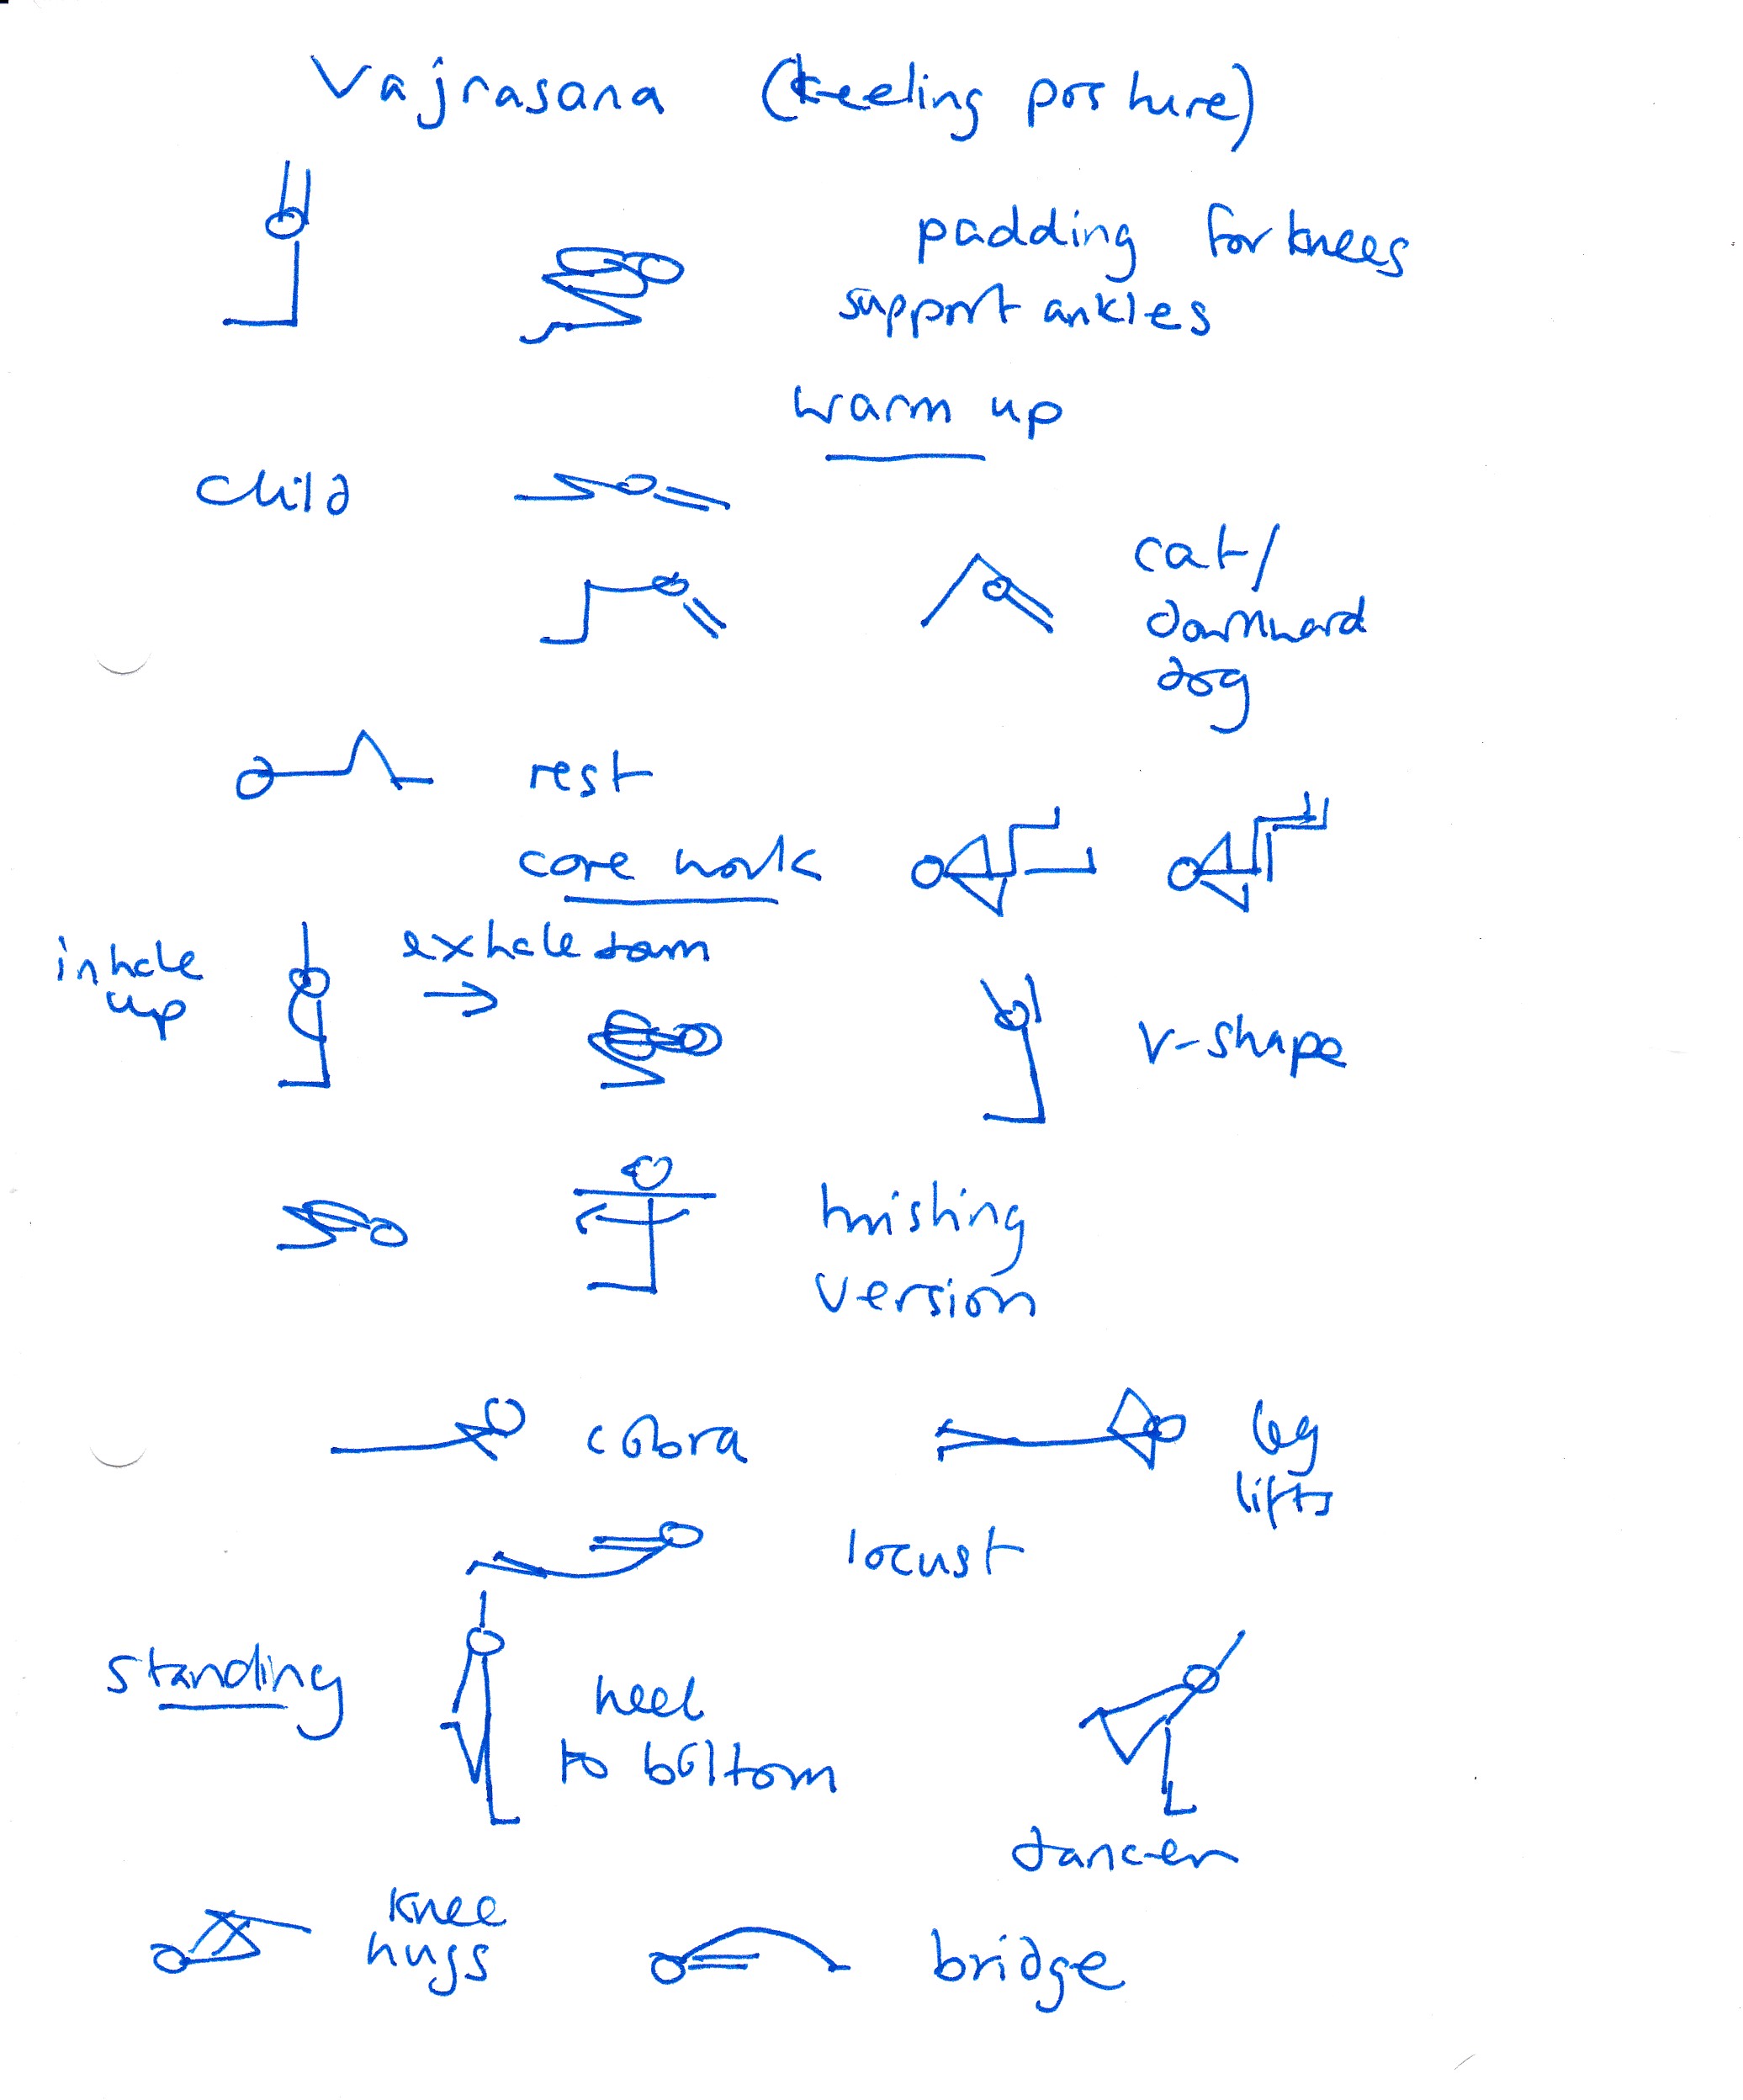 Vajrasana (keeling posture)
padding for knees
support ankles
warm up
child
cat/
downward
dog
rest
core work
inhale
up
exhale down
→
V-shape
twisting
version
cobra
leg
lifts
locust
standing
heel
to bottom
dancer
knee
hugs
bridge